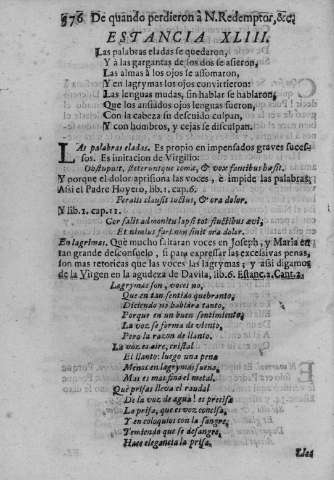 576 De quando perdieron à N. Redemptor, &c.
ESTANCIA XLIII.
Las palabras eladas se quedaron,
Y à las gargantas de los dos se asieron,
Las almas à los ojos se assomaron,
Y en lagrymas los ojos convirtieron:
Las lenguas mudas, sin hablar se hablaron,
Que los ansiados ojos lenguas fueron,
Con la cabeza su descuido culpan,
Y con hombros, y cejas se disculpan.
LAs palabras eladas. Es propio en impensados graves suces-
sos. Es imitacion de Virgilio:
Obstupuit, steteruntque comæ, & vox faucibus hæsit.
Y porque el dolor aprisiona las voces, è impide las palabras,
Assi el Padre Hoyero, lib. 1. cap. 6.
Feralis clausit luctus, & ora dolor.
Y lib. 1. cap. 12.
Cor saliit admonitu lapsi tot fluctibus ævi,
Et nimius fartum finit ora dolor.
En lagrimas. Què mucho faltaran voces en Joseph, y Maria en
tan grande desconsuelo, si para expressar las excessivas penas,
son mas retoricas que las voces las lagrymas; y assi digamos
de la Virgen en la agudeza de Davila, lib. 6. Estanc. 2. Cant. 2.
Lagrymas son, voces no,
Que en tan sentido quebranto,
Diciendo no hablàra tanto,
Porque en un buen sentimiento
La voz se forma de viento,
Pero la razon de llanto.
La voz es aire, cristal
El llanto: luego una pena
Menos en lagrymas suena,
Mas es mas fina el metal.
Què prisas lleva el raudal
De la voz de agua! es precisa
La prisa, que es voz concisa,
Y en coloquios con la sangre,
Temiendo que se desangre,
Hace elegancia la prisa.